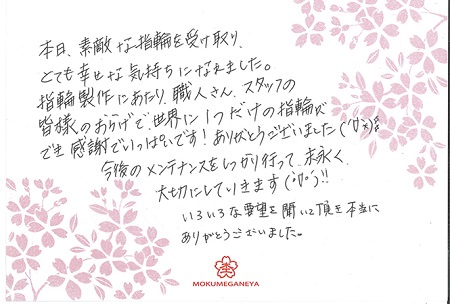 本日、素敵な指輪を受け取り、
とても幸せな気持ちになれました。
指輪製作にあたり、職人さん、スタッフの
皆様のおかげで、世界に1つだけの指輪が
でき感謝でいっぱいです！ありがとうございました
今後のメンテナンスをしっかり行って、末永く
大切にしていきます(^o^)!!
いろいろな要望を聞いて頂き本当に
ありがとうございました。
MOKUMEGANEYA